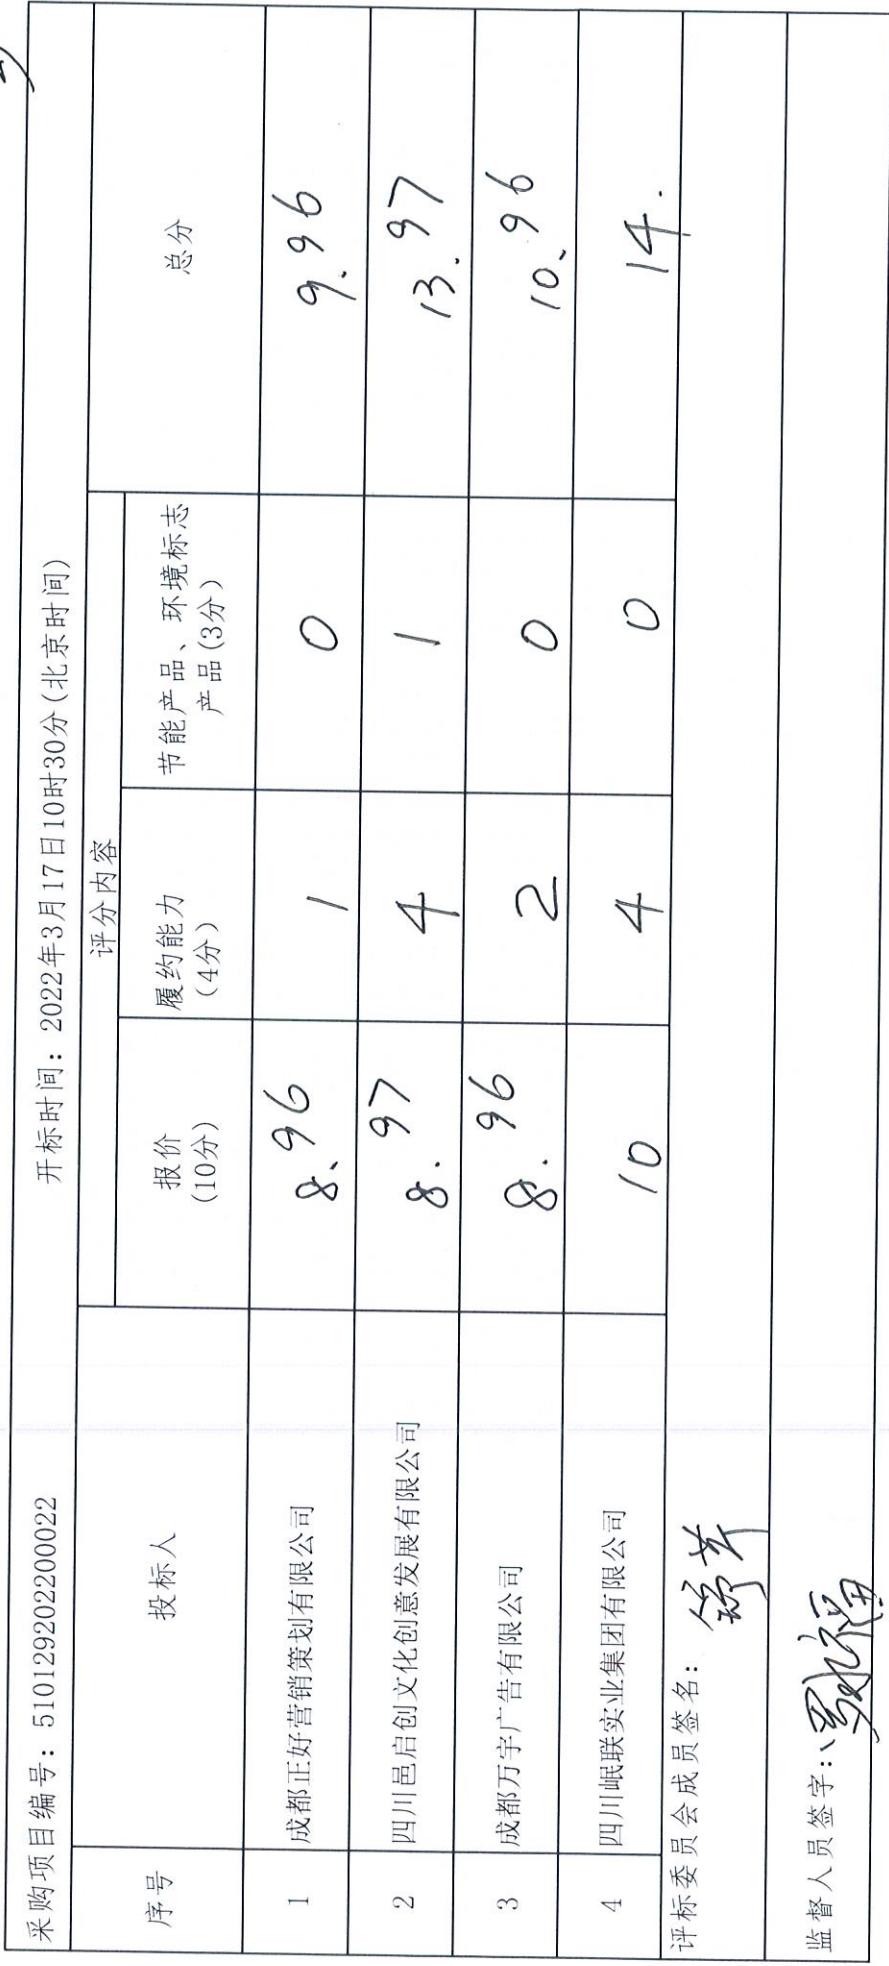 采购项目编号：510129202200022 开标时间：2022年3月17日10时30分(北京时间)
序号 投标人 评分内容 总分
报价 履约能力 节能产品、环境标志
(10分) （4分） 产品(3分)
1 成都正好营销策划有限公司 8.96 1 0 9.96
2 四川邑启创文化创意发展有限公司 8.97 4 1 13.97
3 成都万宇广告有限公司 8.96 2 0 10.96
4 四川岷联实业集团有限公司 10 4 0 14.
评标委员会成员签名：
监督人员签字：